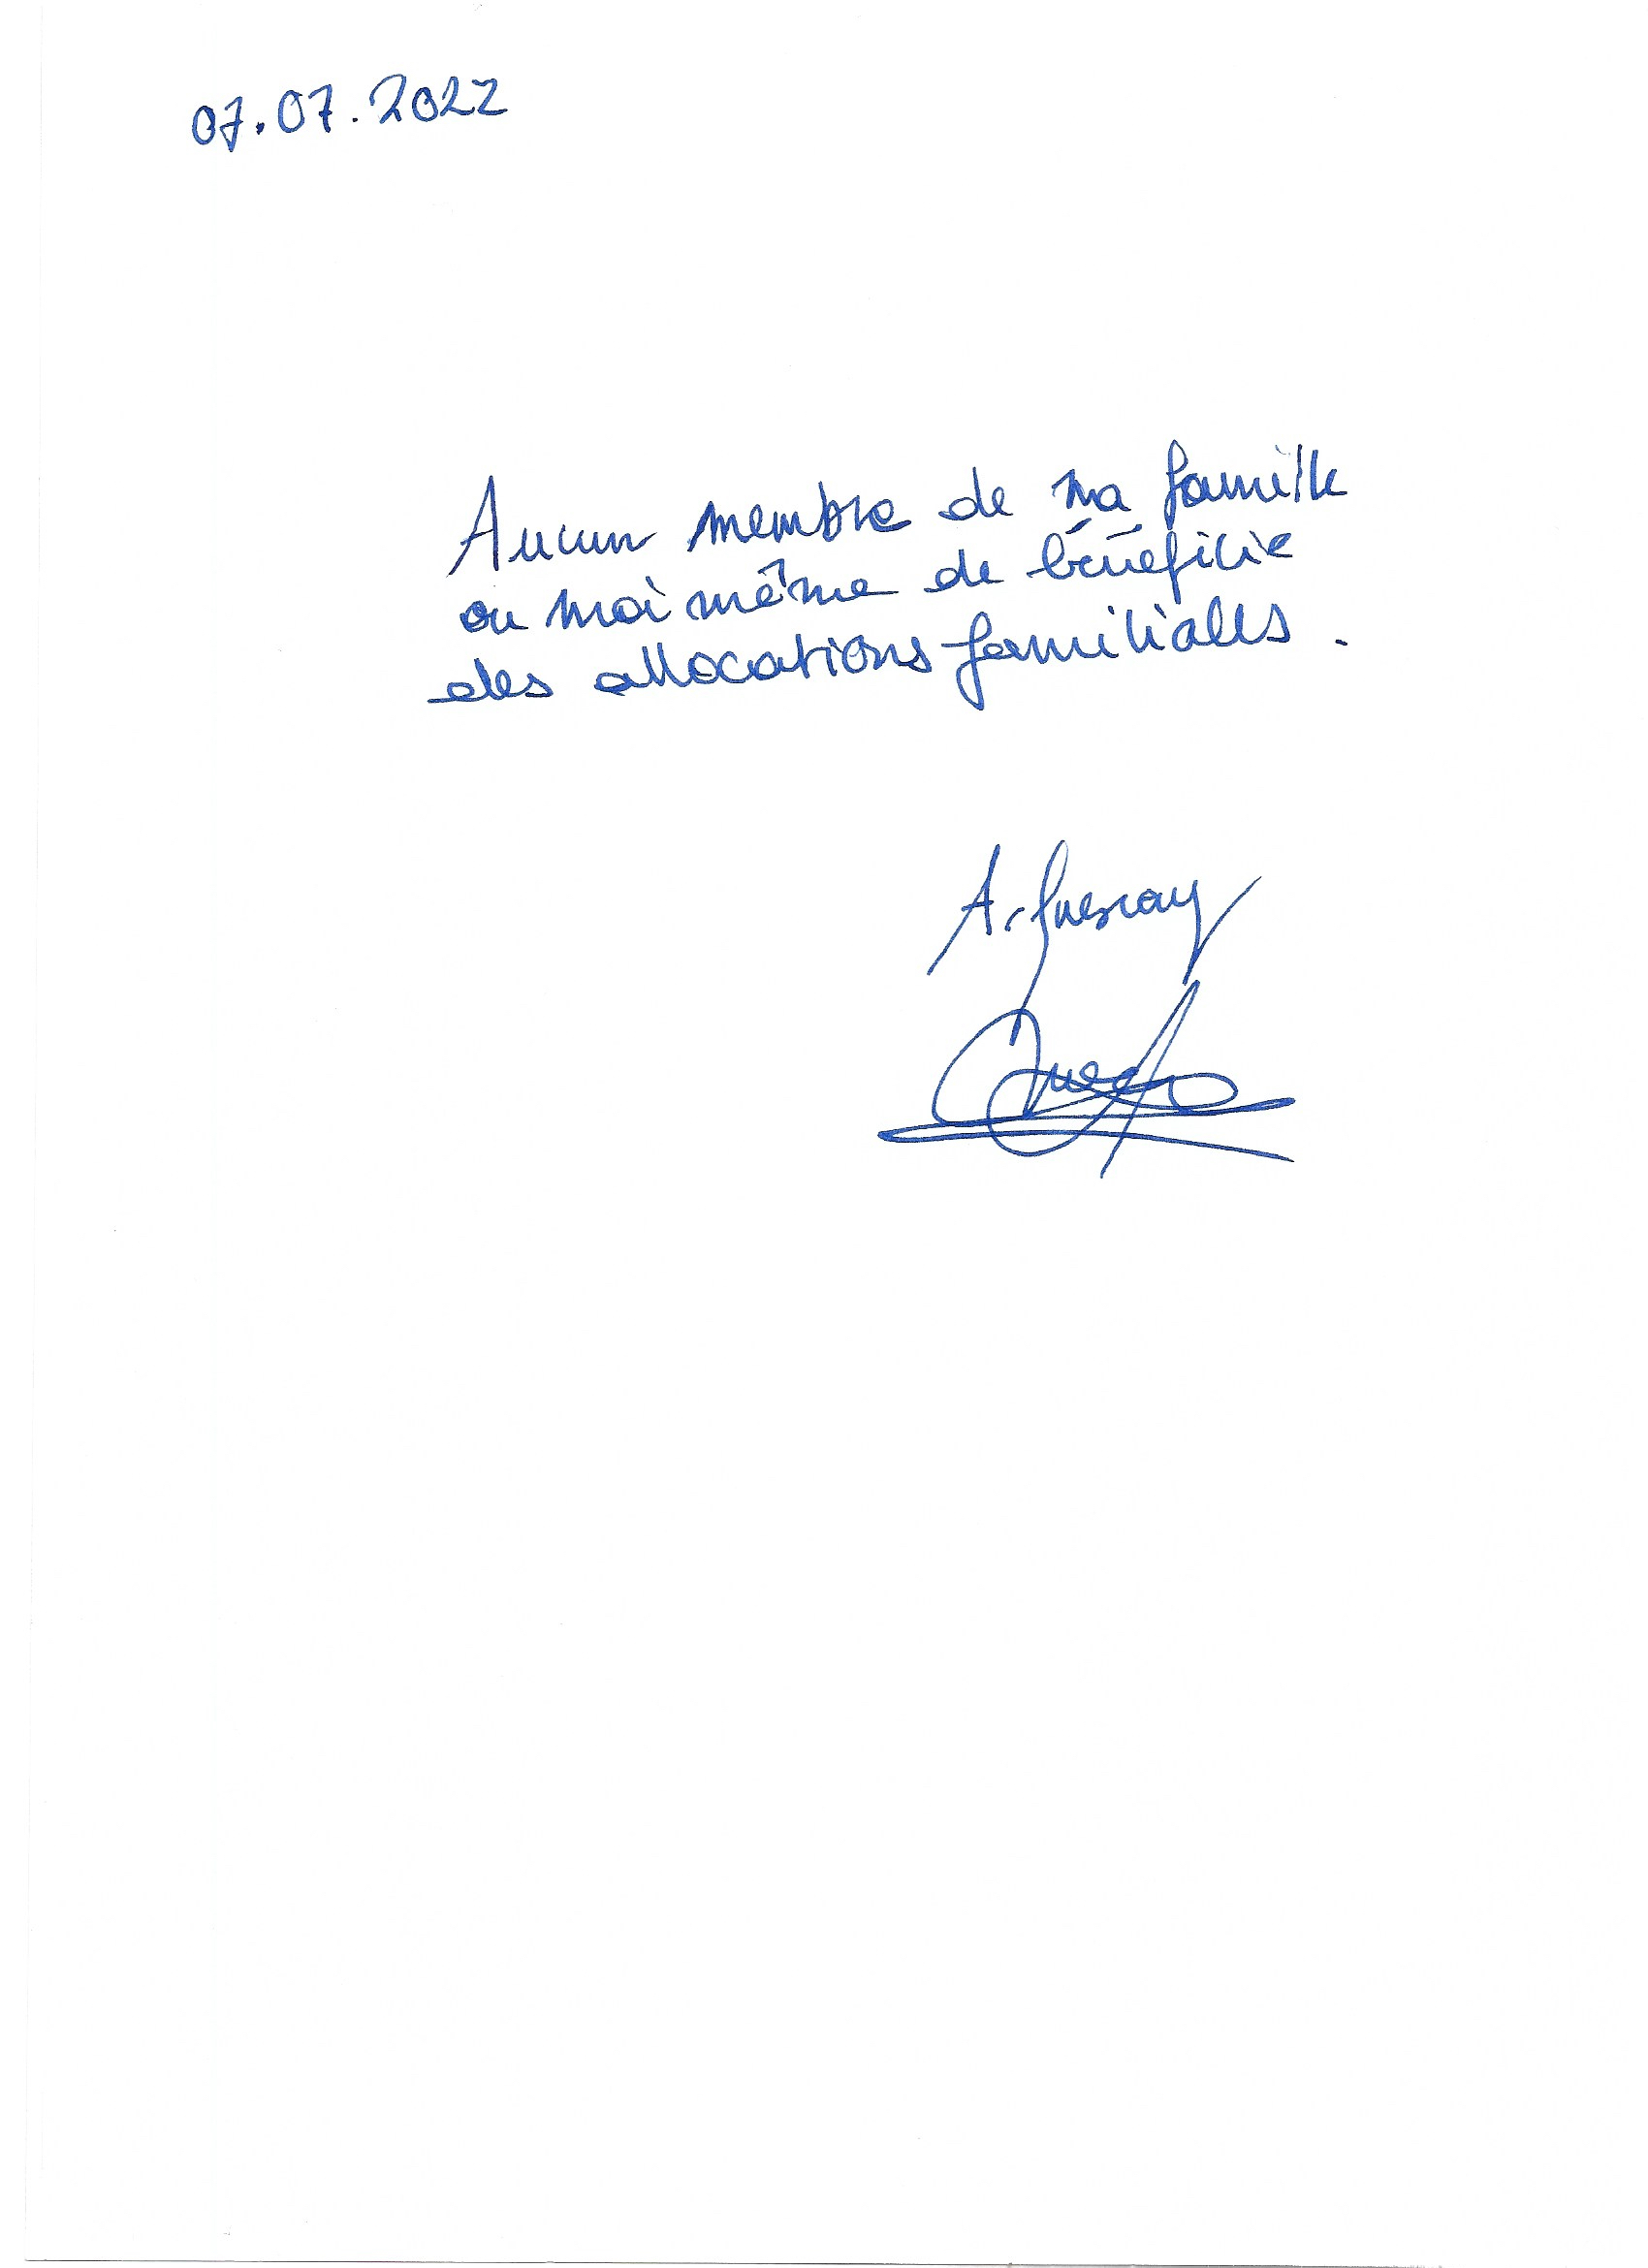 07.07.2022
Aucun membre de ma famille
ou moi même de bénéficie
des allocations familiales.
A.